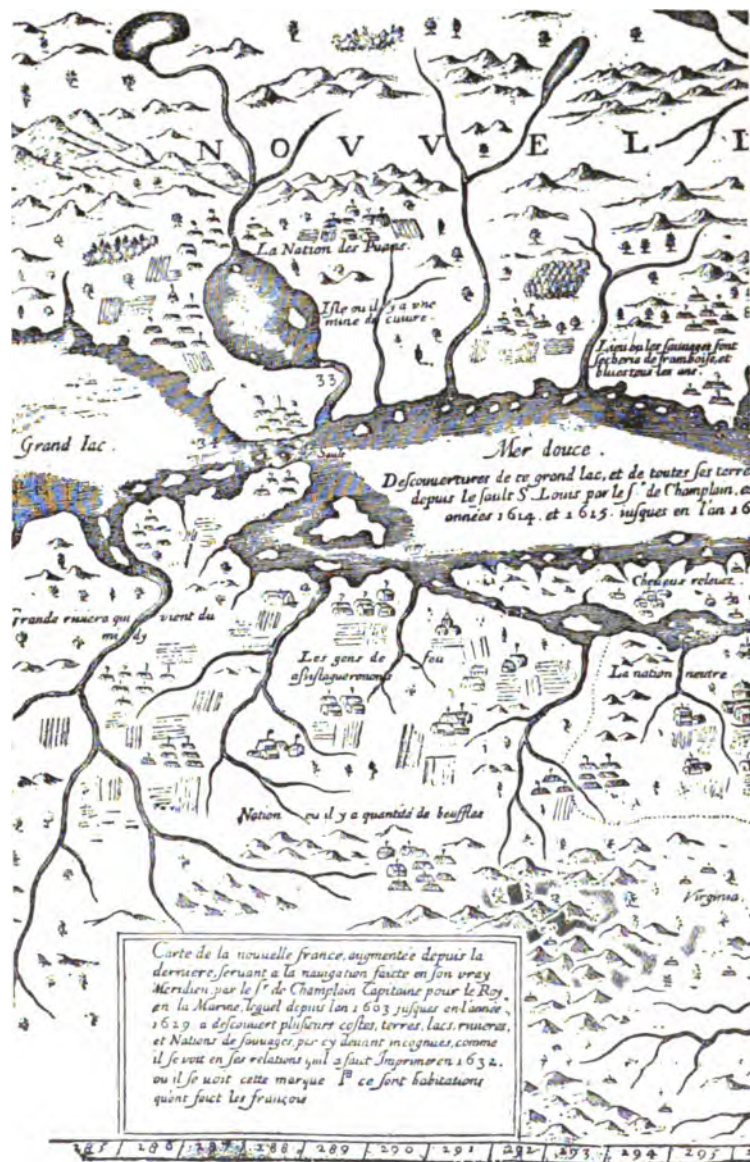 NOVVELL
La Nation des Puans.
Isle ou il y a vne
mine de cuiure.
Lieu ou les sauuages font
secherie de framboise, et
blues tous les ans.
33
Grand lac.
34
Sault
Mer douce.
Descouuertures de ce grand lac, et de toutes ses terre
depuis le sault S. Louis par le sr. de Champlain, e
années 1614. et 1615. iusques en l'an 16
Cheueux releuez.
Grande riuiere qui vient du
midy
Les gens de feu
asistagueronons
La nation neutre
Nation ou il y a quantité de beuffles
Virginia.
Carte de la nouuelle france, augmentée depuis la
derniere, seruant a la nauigation faicte en son vray
Meridien, par le sr. de Champlain Capitaine pour le Roy
en la Marine, lequel depuis lan 1603 jusques en l'année
1629 a descouuert plusieurs costes, terres, lacs, riuieres,
et Nations de sauuages, par cy deuant incognues, comme
il se voit en ses relations quil a faict Imprimer en 1632.
ou il se uoit cette marque ce sont habitations
qu'ont faict les françois
285 286 287 288 289 290 291 292 293 294 295